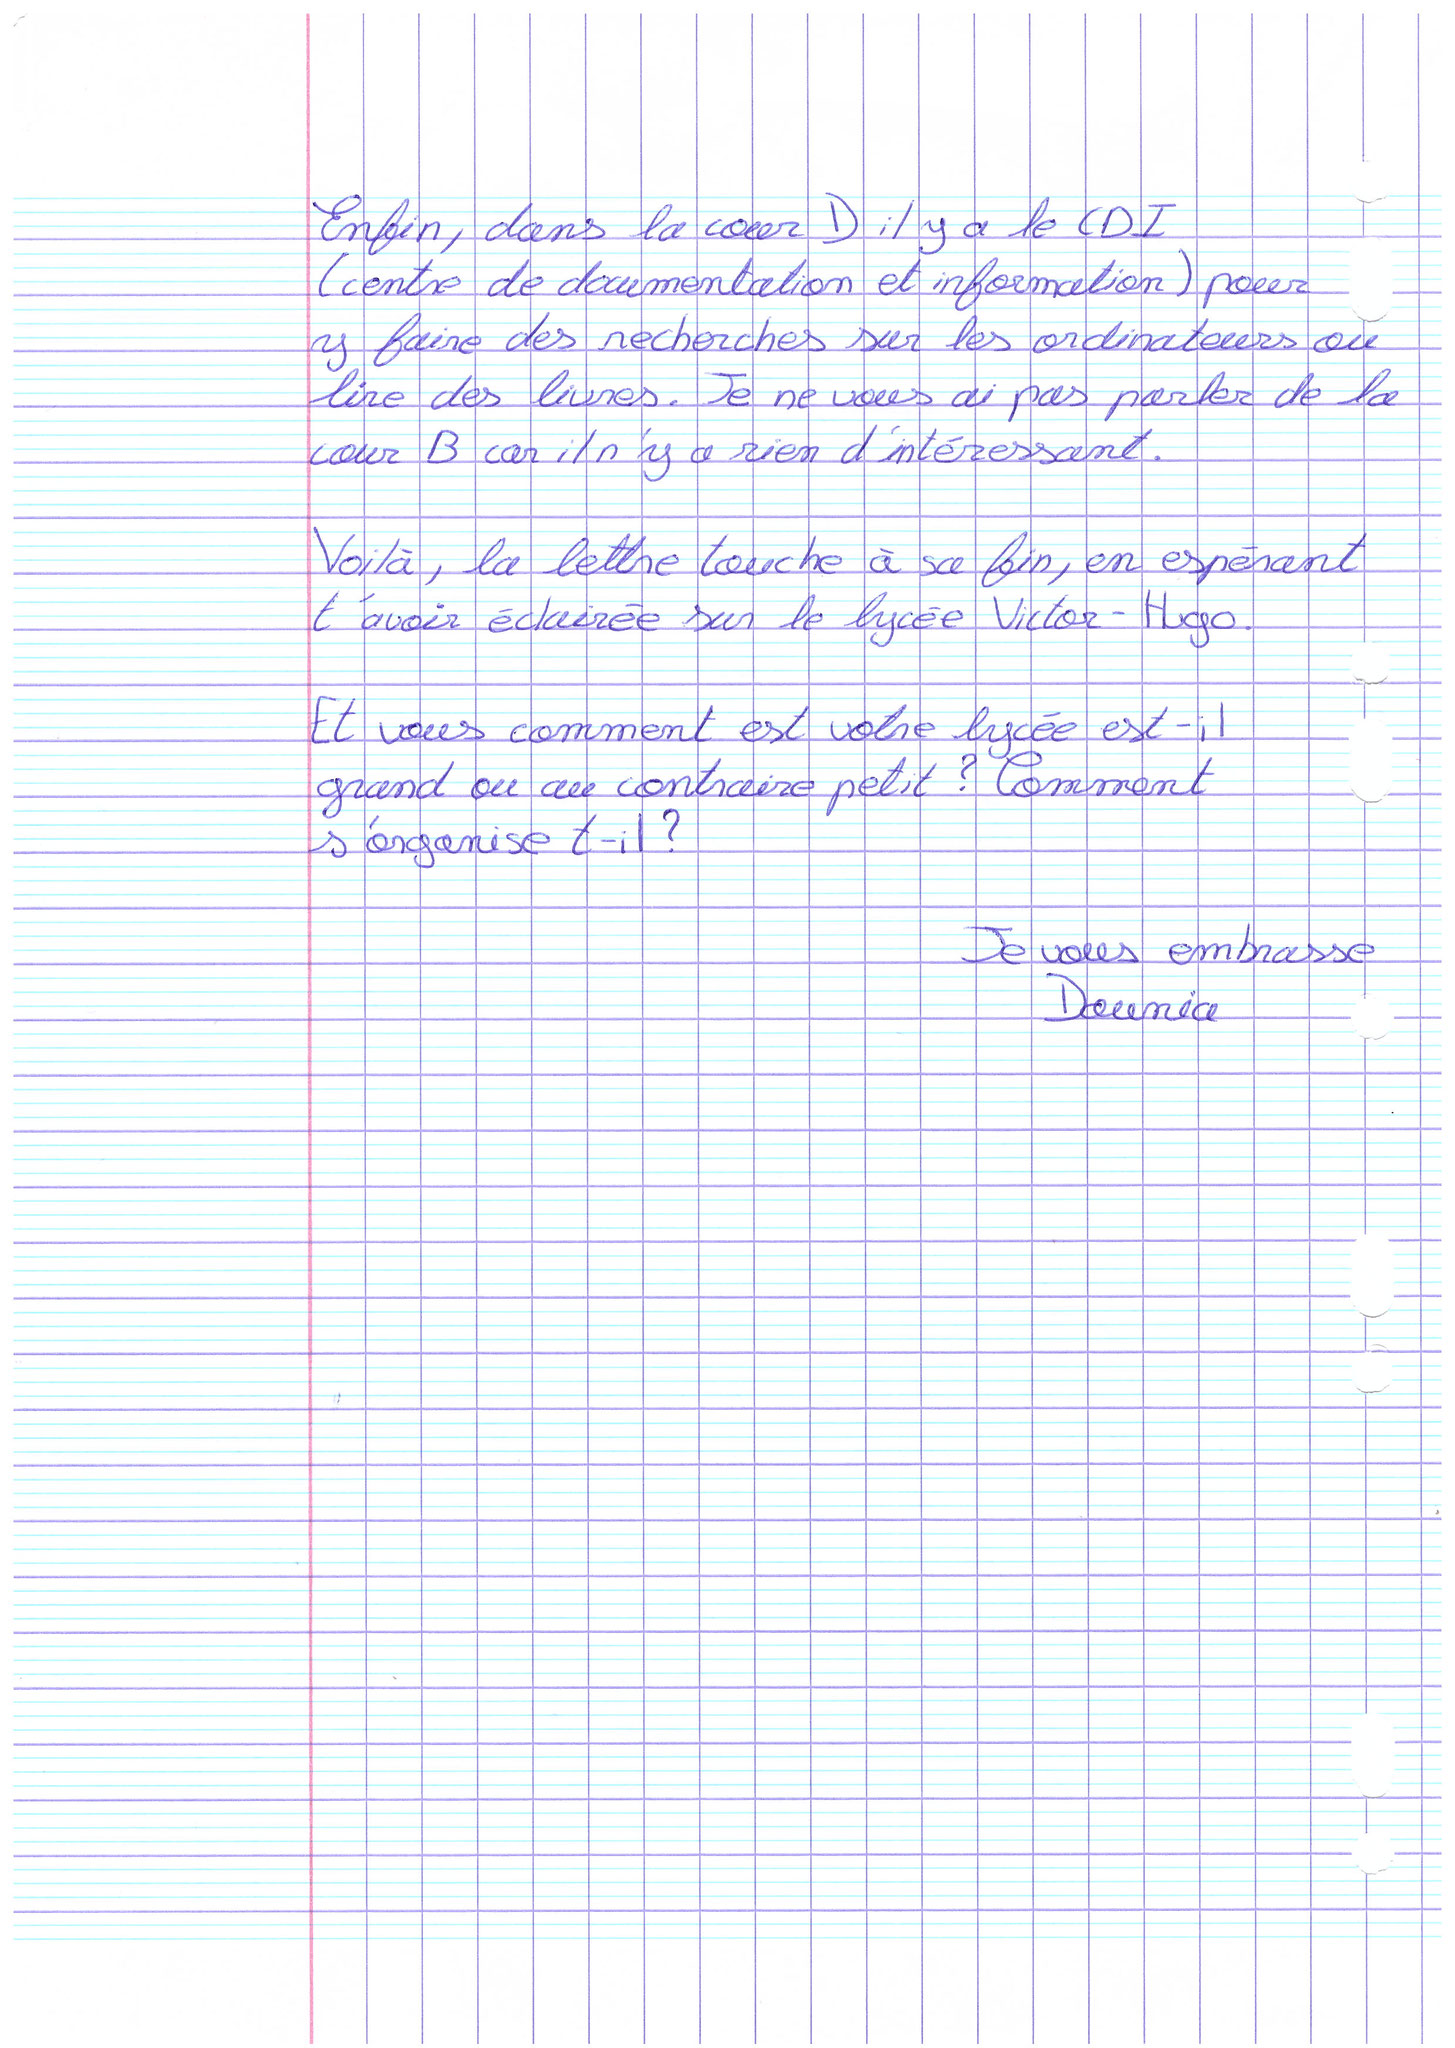 Enfin, dans la cour D il y a le CDI
(centre de documentation et information) pour
y faire des recherches sur les ordinateurs ou
lire des livres. Je ne vous ai pas parler de la
cour B car il n'y a rien d'intéressant.
Voilà, la lettre touche à sa fin, en espérant
t'avoir éclairée sur le lycée Victor-Hugo.
Et vous comment est votre lycée est-il
grand ou au contraire petit ? Comment
s'organise t-il ?
Je vous embrasse
Dounia